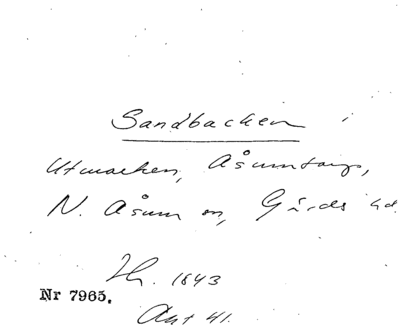 Sandbacken i
Utmarken, Åsumtorp,
N. Åsum sn, Gärds hd.
Th. 1843
Nr 7965.
Akt 41.